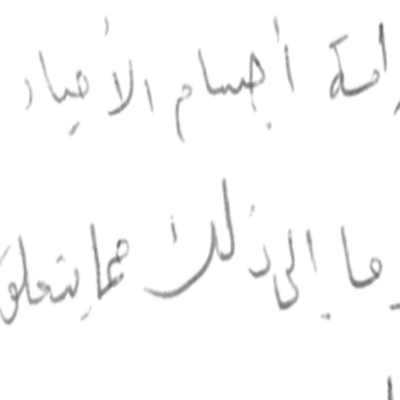 أجسام الأحياء
وما إلى ذلك مما يتعلق